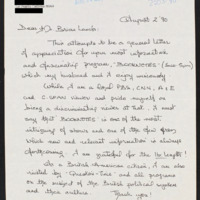 August 2 '90
Dear Mr. Brian Lamb,
This attempts to be a general letter
of appreciation for your most informative
and scholarship program, BOOKNOTES (8:00 Sun)
which my husband and I enjoy
I am a loyal PBS, CNN, A & E
and C-SPAN viewer and pride myself on
being a discriminating viewer at that. I must
say that BOOKNOTES is one of the most
intriguing of shows and one of the few from
which new and relevant information is always
forthcoming. I am grateful for the length!
As a British-American citizen, I am also
by "Question Time" and all programs
on the subject of the British political system
and their culture. Thank you!